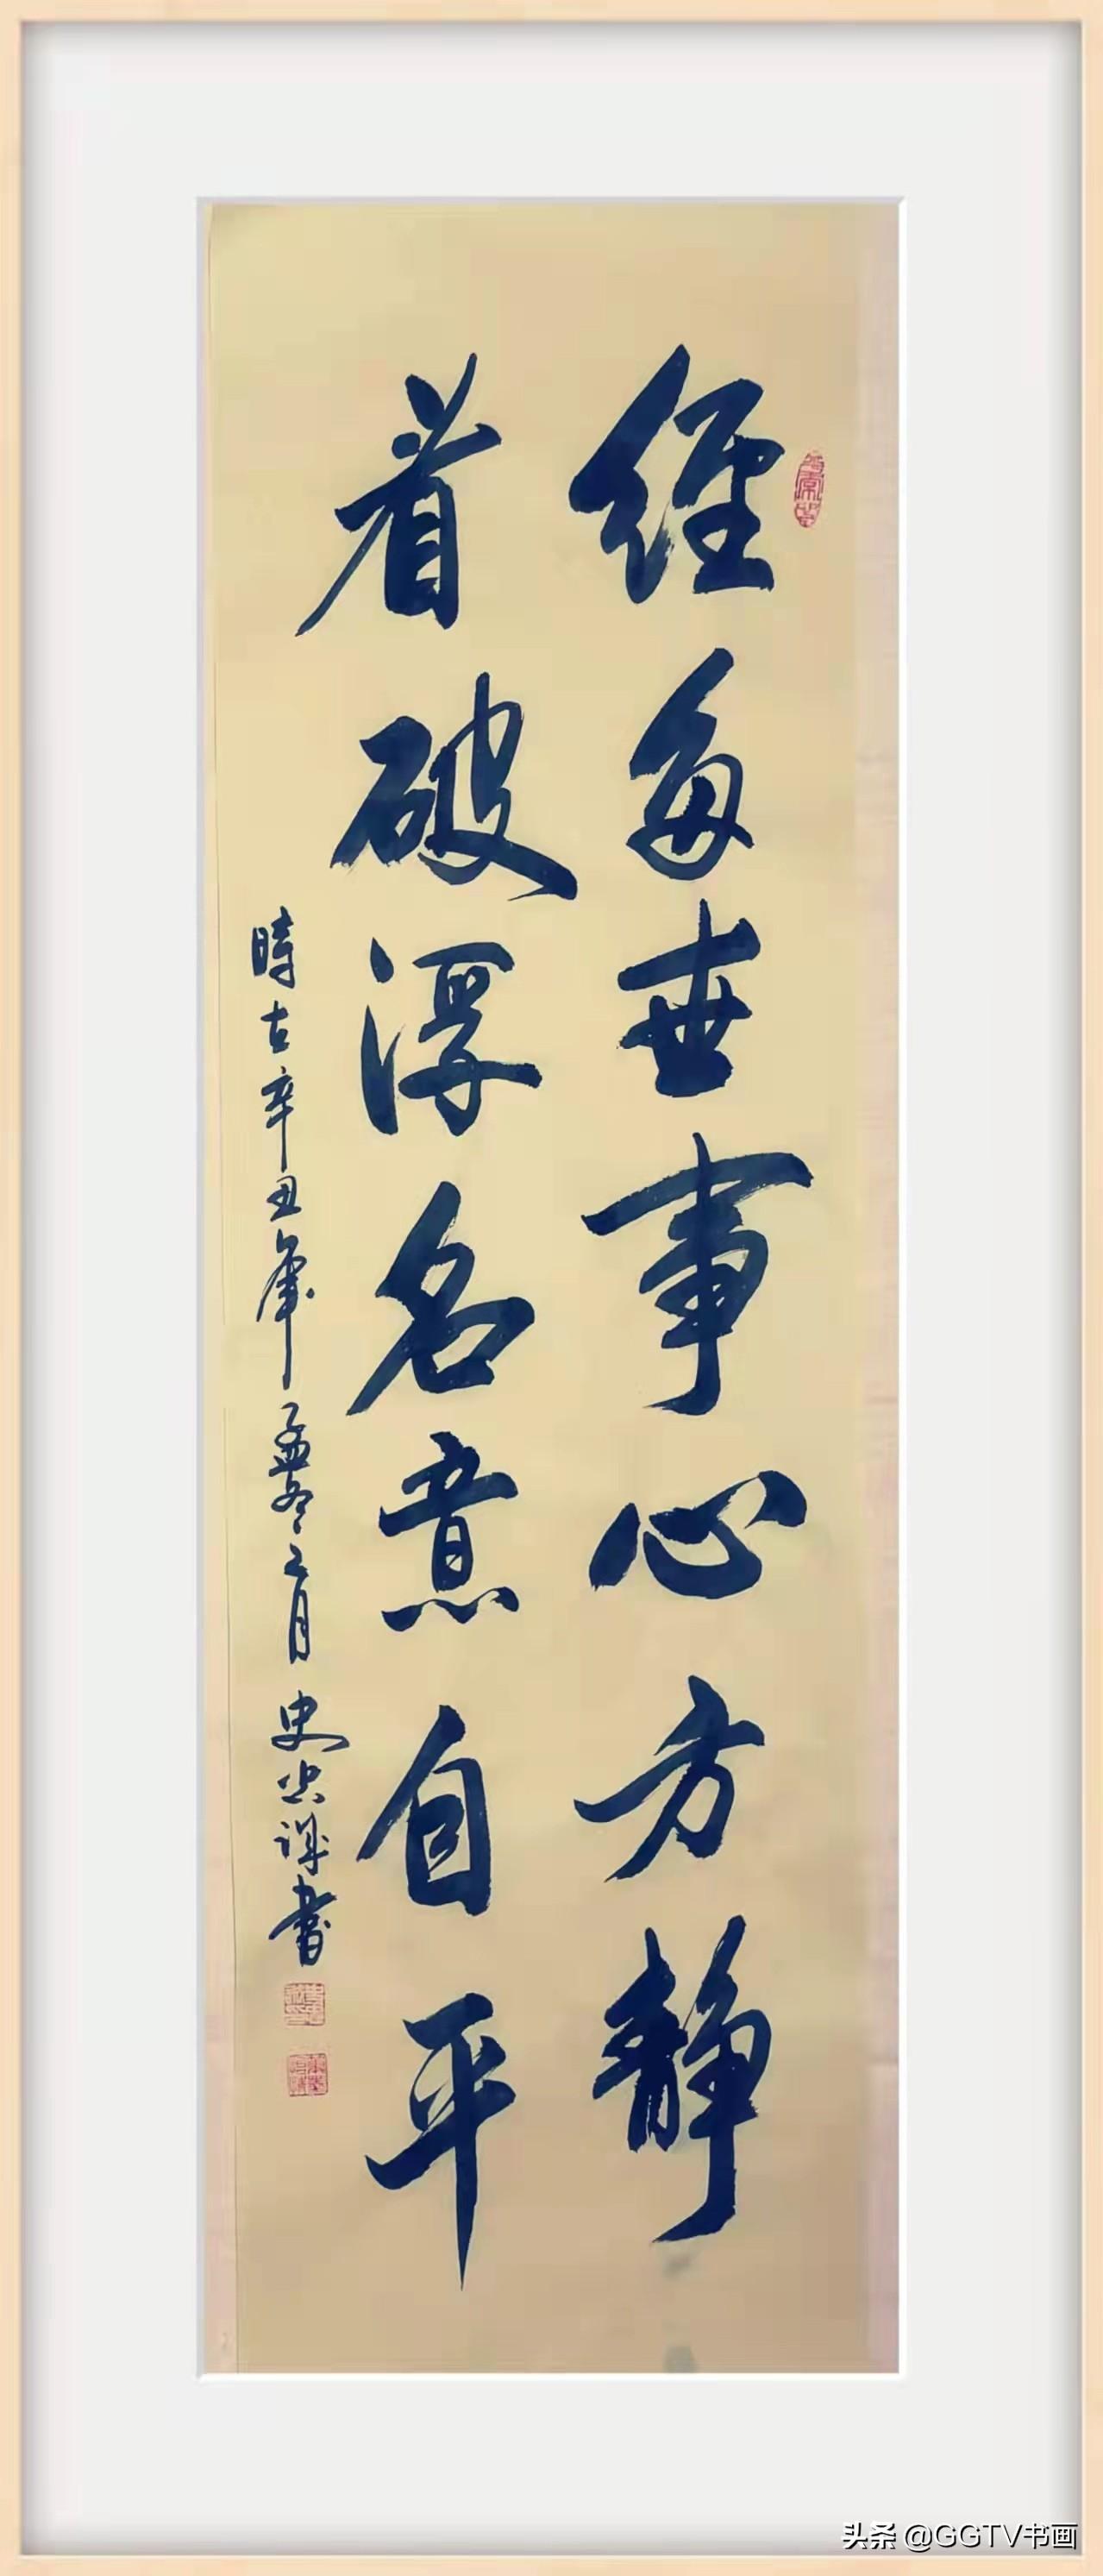 经多世事心方静
看破浮名意自平
時古辛丑年孟冬之月 史 書
头条 @GGTV书画